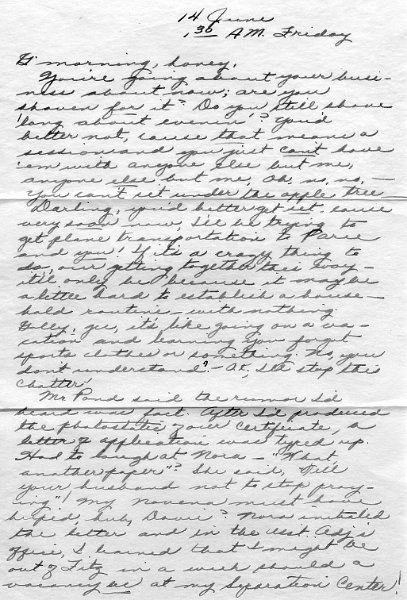 14 June
1³⁰ A.M. Friday
G'morning, honey,
You're going about your busi-
ness about now; are you
shaven for it? Do you still shave
'long about evenin'? You'd
better not, cause that means a
session and you just can't have
'em with anyone else but me,
anyone else but me, Oh no, no, —
You can't sit under the apple tree
Darling, you'd better get set, cause
very soon now, I'll be trying to
get plane transportation to Paris
and you! If it's a crazy thing to
do, our getting together this way —
it'll only be because it may be
a little hard to establish a house-
hold routine — with nothing
Golly, gee, it's like going on a va-
cation and learning you forgot
sports clothes or something. No, you
don't understand? — OK, I'll stop this
chatter!
Mr Pond said the rumor I'd
heard was fact. After I'd produced
the photostatic of your Certificate, a
letter of application was typed up.
Had to laugh at Nora — "What,
another paper"? She said, "Tell
your husband not to stop pray-
ing"! My novena must have
helped, hub, Davie? Nora initialed
the letter and in the Asst. Adj's
office, I learned that I might be
out of Fitz in a week should a
vacancy be at my Separation Center!